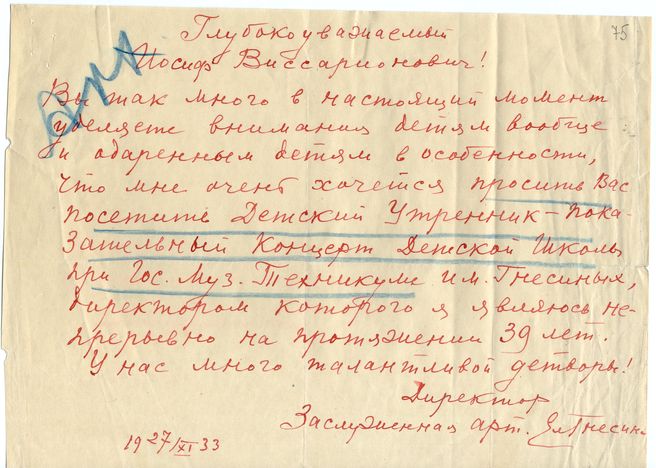 75
Глубокоуважаемый
Иосиф Виссарионович!
Вы так много в настоящий момент
уделяете внимания детям вообще
и одаренным детям в особенности,
что мне очень хочется просить Вас
посетить Детский Утренник – пока-
зательный Концерт Детской Школы
при Гос. Муз. Техникуме им. Гнесиных,
директором которого я являюсь не-
прерывно на протяжении 39 лет.
У нас много талантливой детворы!
Директор
Заслуженная арт. Ел Гнесин
19 27/XI 33